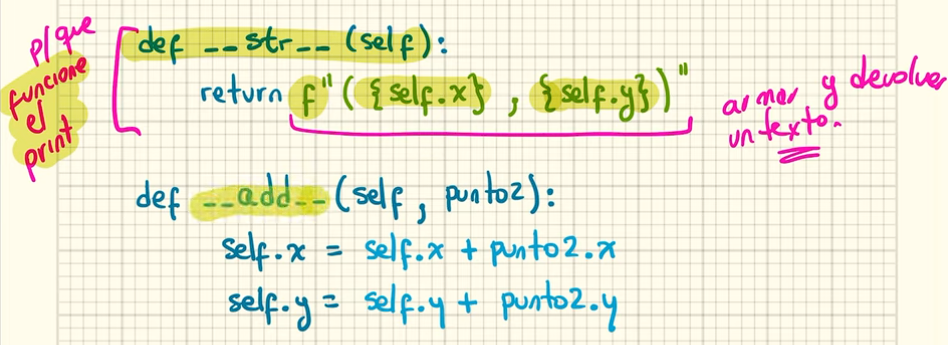 p/que
funcione
el
print
def __str__ (self):
return f"({self.x}, {self.y})"
armar y devolver
un texto.
def __add__ (self, punto2):
self.x = self.x + punto2.x
self.y = self.y + punto2.y